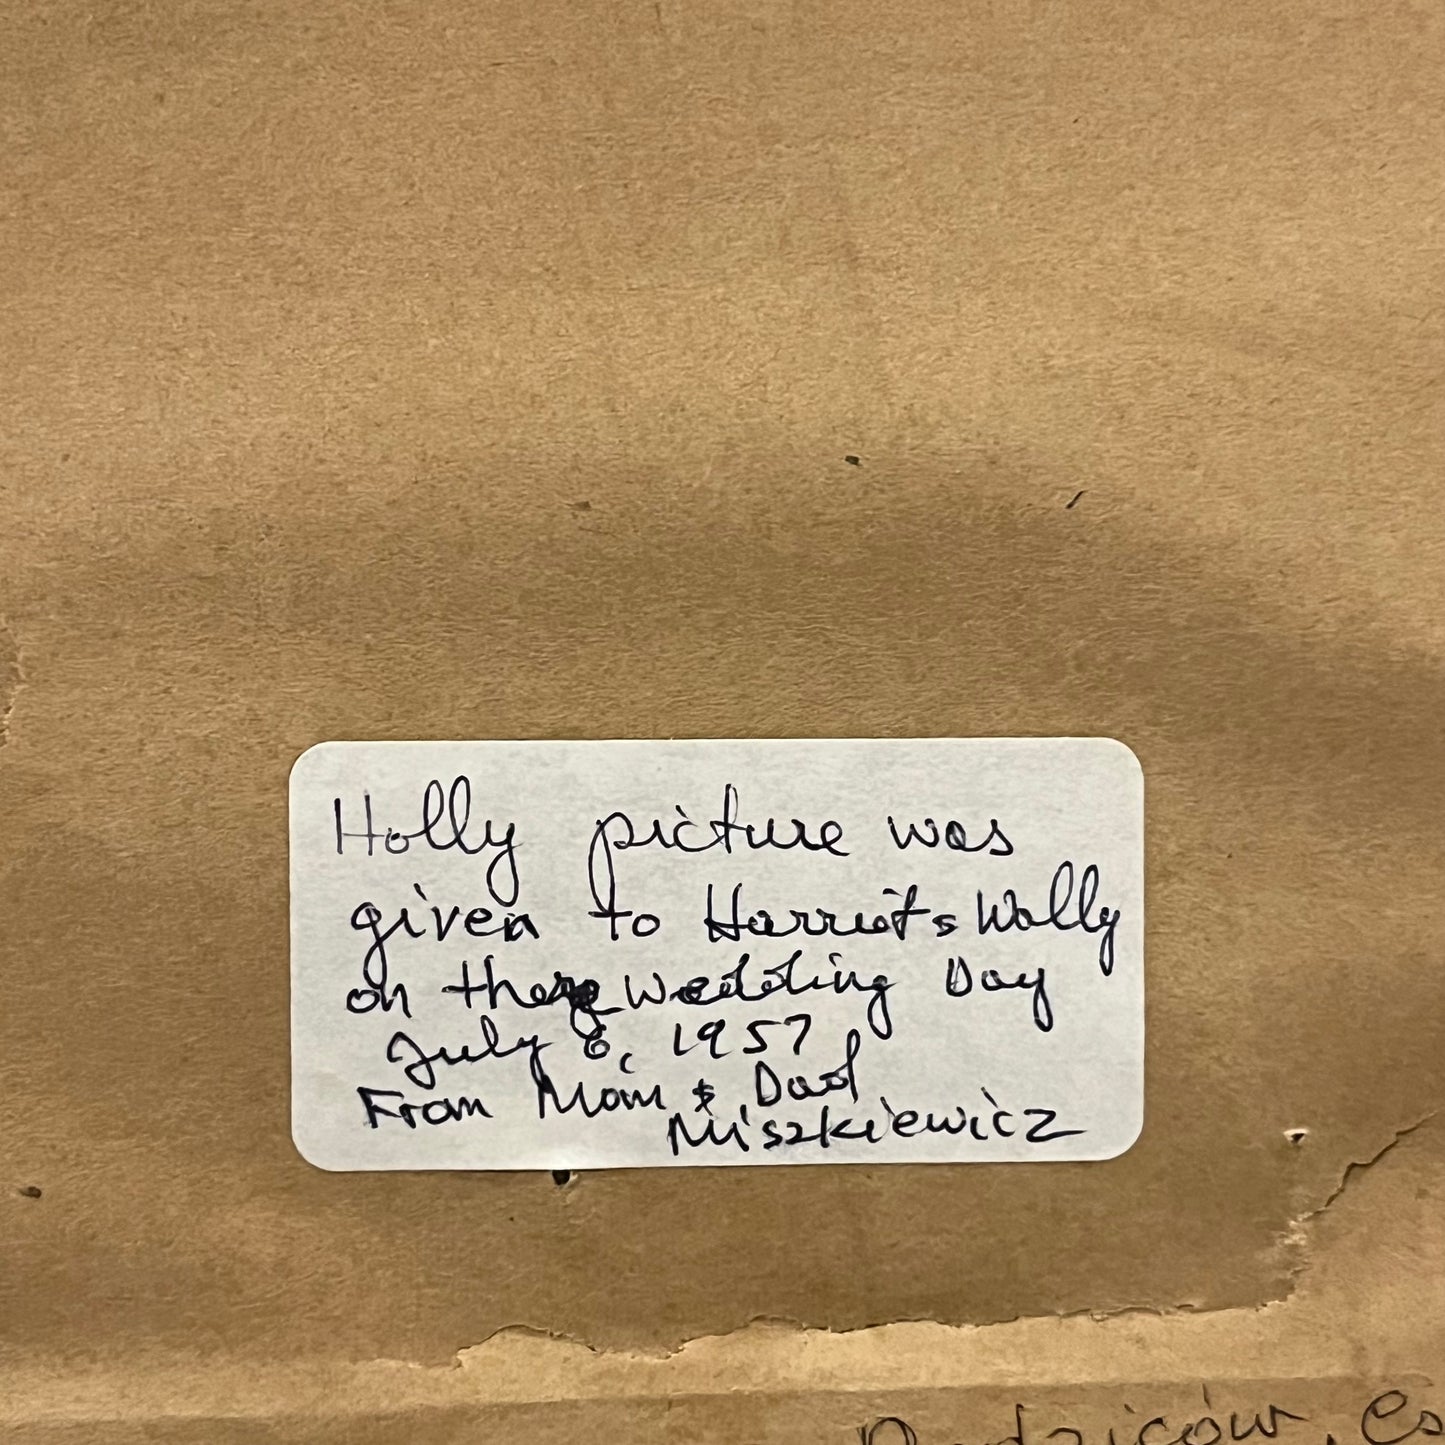 Holly picture was
given to Harriet & Wally
on there wedding Day
July 6, 1957
From Mom & Dad
Miszkiewicz
Rodziców,